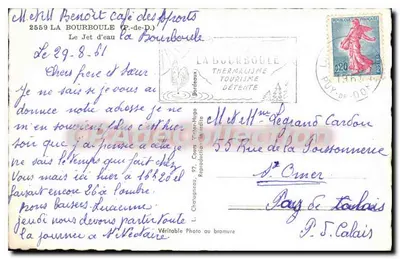 Mr M Benoît Café des Sports
2559 LA BOURBOULE (P.-de-D.)
Le Jet d'eau
la Bourboule
Le 29-8-61
Chers frère et sœur
Je ne sais si je vous ai
donner notre adresse je ne
m'en souviens plus c'est hier
soir que j'ai pensé à cela je
ne sais le temps que fait chez
Vous mais ici hier à 16h20 il
faisait encore 26 à l'ombre.
bons baisers Lucienne
jeudi nous devons partir toute
la journée a St Nectaire
LA BOURBOULE
THERMALISME
TOURISME
DÉTENTE
0,20
PUY-DE-DOME
Mr Mme Legrand Cardon
55 Rue de la Poissonnerie
St Omer
Pas de Calais
P. d. Calais
Véritable Photo au bromure